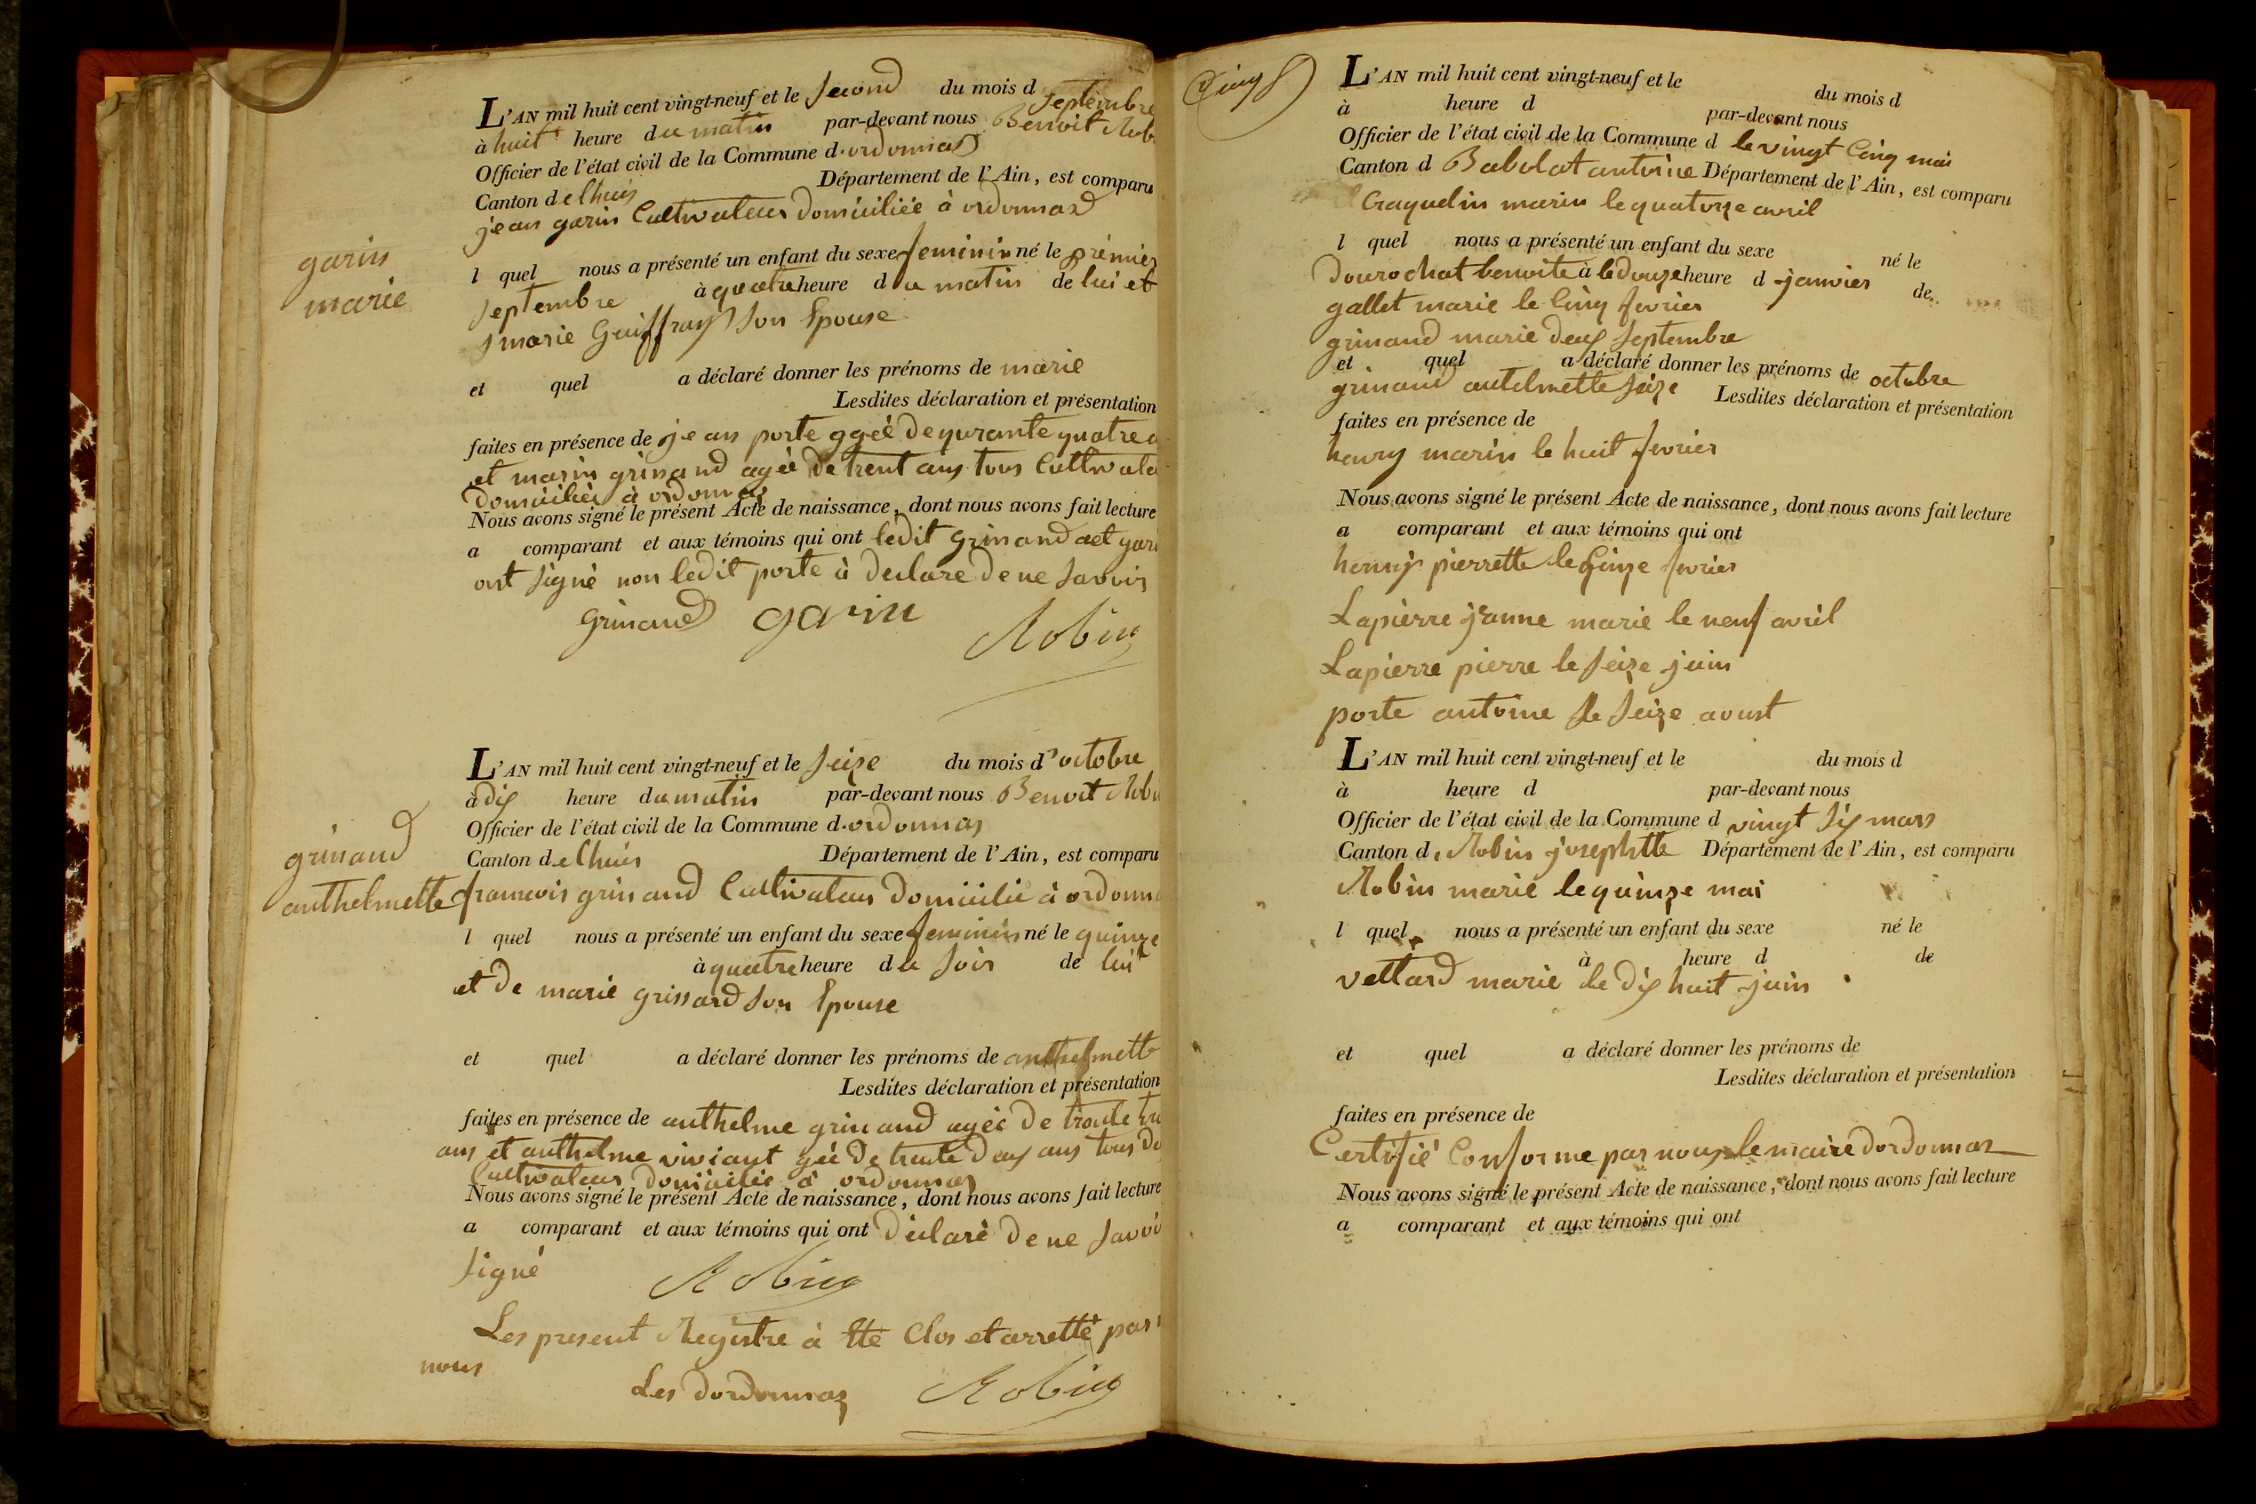 L'AN mil huit cent vingt-neuf et le second du mois d septembre
à huit heure du matin par-devant nous Benoit Rob
Officier de l'état civil de la Commune d. ordonnas
Canton de lhuis Département de l'Ain, est comparu
jean garin Cultivateur domiciliée à ordonnas
garin
marie
l quel nous a présenté un enfant du sexe feminin né le premier
septembre à quatre heure du matin de lui et
marie Guiffray son Epouse
et quel a déclaré donner les prénoms de marie
Lesdites déclaration et présentation
faites en présence de jean porte ageé de qurante quatre a
et marin grinand ageé de trent ans tous Cultivate
domiciliés à ordonnas
Nous avons signé le présent Acte de naissance, dont nous avons fait lecture
a comparant et aux témoins qui ont ledit grinand et gari
ont signé non ledit porte à declare de ne savoir
grinand garin
Robin
L'AN mil huit cent vingt-neuf et le seize du mois d'octobre
à dix heure du matin par-devant nous Benoit Robi
Officier de l'état civil de la Commune d. ordonnas
Canton de lhuis Département de l'Ain, est comparu
grinand
anthelmette
francois grinand Cultivateur domicilié à ordonna
l quel nous a présenté un enfant du sexe feminin né le quinze
à quatre heure du soir de lui
et de marie grissard son Epouse
et quel a déclaré donner les prénoms de anthelmette
Lesdites déclaration et présentation
faites en présence de anthelme grinand ageé de trente
ans et anthelme viviant gée de trente deux ans tous de
Cultivateur domiciliés à ordonnas
Nous avons signé le présent Acte de naissance, dont nous avons fait lecture
a comparant et aux témoins qui ont déclaré de ne savoi
signé Robin
Les present Registre à Ete Clos et arretté par
nous
Les dordonnas Robin
Cinq
L'AN mil huit cent vingt-neuf et le du mois d
à heure d par-devant nous
Officier de l'état civil de la Commune d le vingt Cinq mai
Canton d Babolat antoine Département de l'Ain, est comparu
Craquelin marin le quatorze avril
l quel nous a présenté un enfant du sexe né le
Dourochat benoite à le douze heure d janvier de
gallet marie le Cinq fevrier
grinand marie deux septembre
et quel a déclaré donner les prénoms de octobre
grinand antelmette seize Lesdites déclaration et présentation
faites en présence de
henry marin le huit fevrier
Nous avons signé le présent Acte de naissance, dont nous avons fait lecture
a comparant et aux témoins qui ont
henry pierrette le fevrier
Lapierre jeanne marie le neuf avril
Lapierre pierre le seize juin
porte antoine le seize aoust
L'AN mil huit cent vingt-neuf et le du mois d
à heure d par-devant nous
Officier de l'état civil de la Commune d vingt six mars
Canton d. Robin josephtte Département de l'Ain, est comparu
Robin marie le quinze mai
l quel nous a présenté un enfant du sexe né le
à heure d de
vettard marie le dix huit juin
et quel a déclaré donner les prénoms de
Lesdites déclaration et présentation
faites en présence de
Certifié Conforme par nous le maire dordonnas
Nous avons signé le présent Acte de naissance, dont nous avons fait lecture
a comparant et aux témoins qui ont